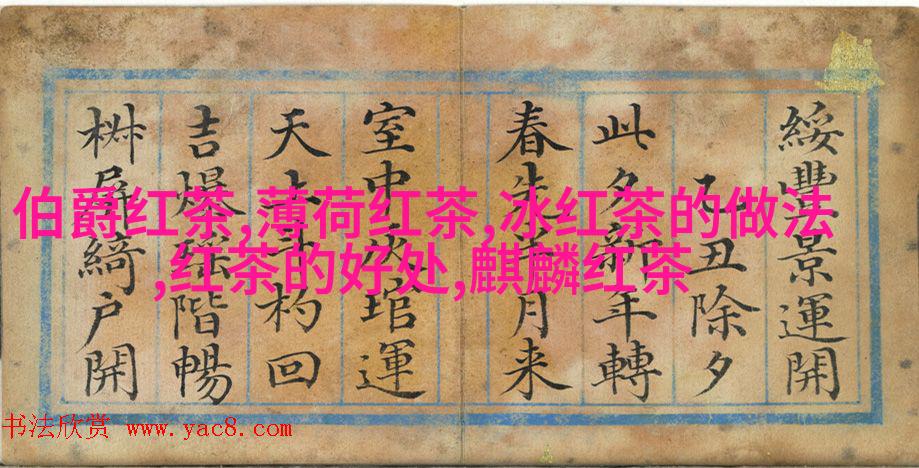 綏豐景運開
乙丑除夕
此夕新年轉
春先半月来
室中灰琯運
天上斗杓回
吉爆階暢
椒屏綺户開
伯爵红茶,薄荷红茶,冰红茶的做法
,红茶的好处,麒麟红茶
书法欣赏 www.yac8.com